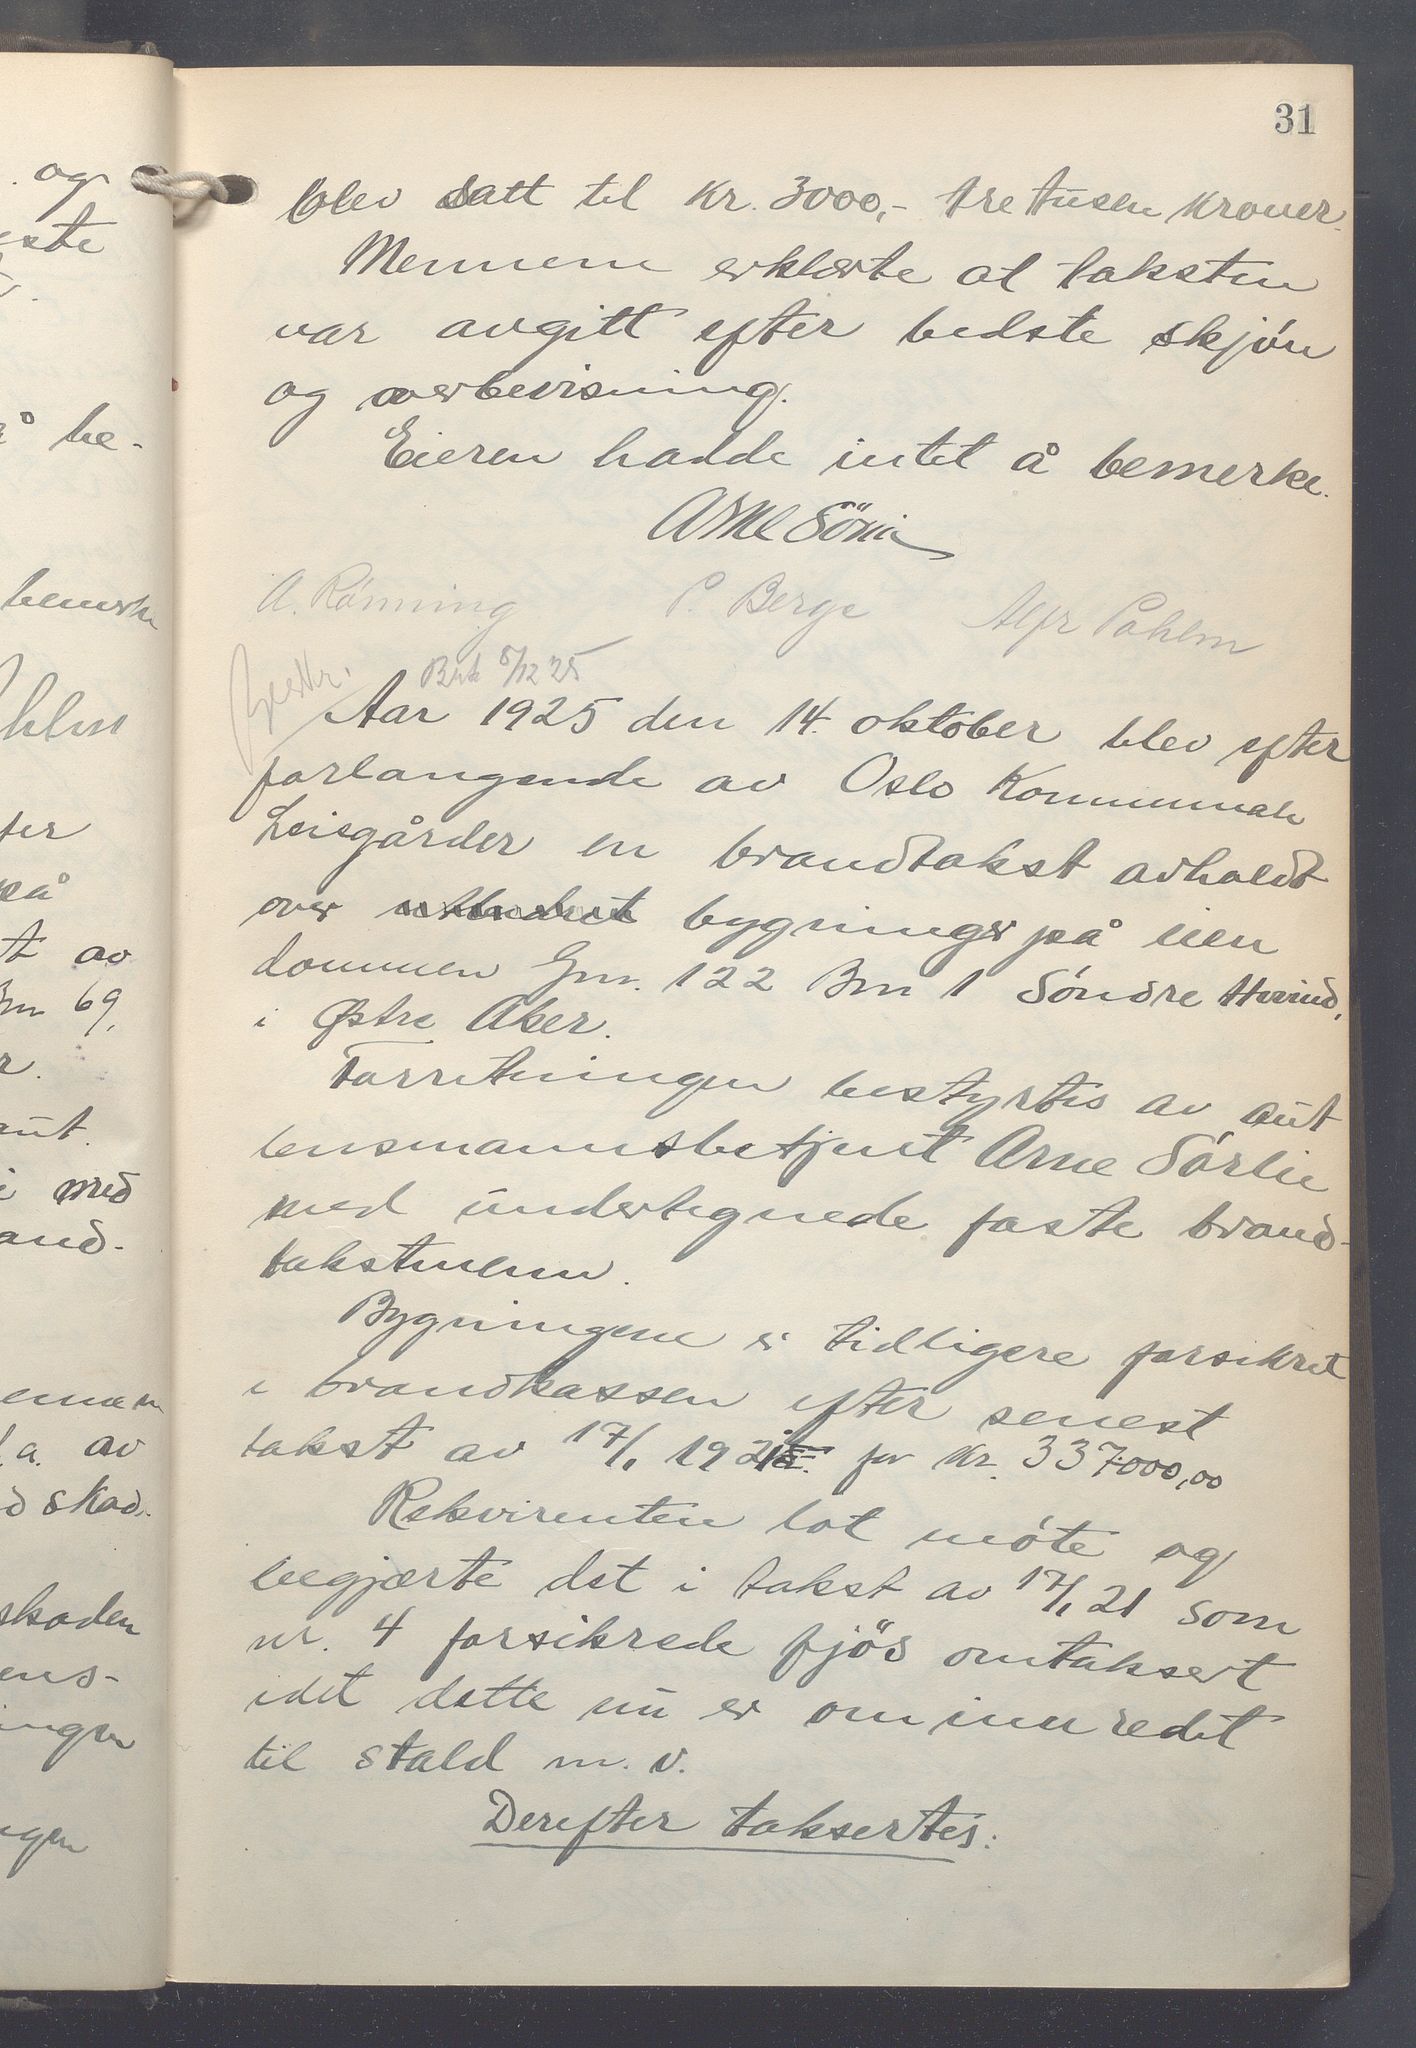 31
blev satt til kr. 3000,- tre tusen kroner.
Mennene erklærte at taksten
var avgitt efter bedste skjøn
og overbevisning.
Eieren hadde intet å bemerke.
Arne Sörlie
A. Rønning P. Berge Alfr Pahlm
Beskr. Brk 5/12 25
Aar 1925 den 14. oktober blev efter
forlangende av Oslo Kommunale
Leiegårder en brandtakst avholdt
over bygninger på eien
dommen Gnr. 122 Bnr 1 Söndre Hovind,
i Østre Aker.
Forretningen bestyrtes av aut
lensmannsbetjent Arne Sörlie
med undertegnede faste brand-
takstmenn.
Bygningene er tidligere forsikret
i brandkassen efter senest
takst av 17/1 1921 for kr. 337000,00
Rekvirenten lot möte og
begjærte det i takst av 17/1 21 som
nr. 4 forsikrede fjös omtaksert
idet dette nu er ominnredet
til stald m. v.
Derefter taksertes:
og
este
å be-
bemerke
hlm
ter
på
t av
Bnr 69,
r.
aut.
i med
and.
l.a. av
d skad.
skaden
ens-
ingen
ngen